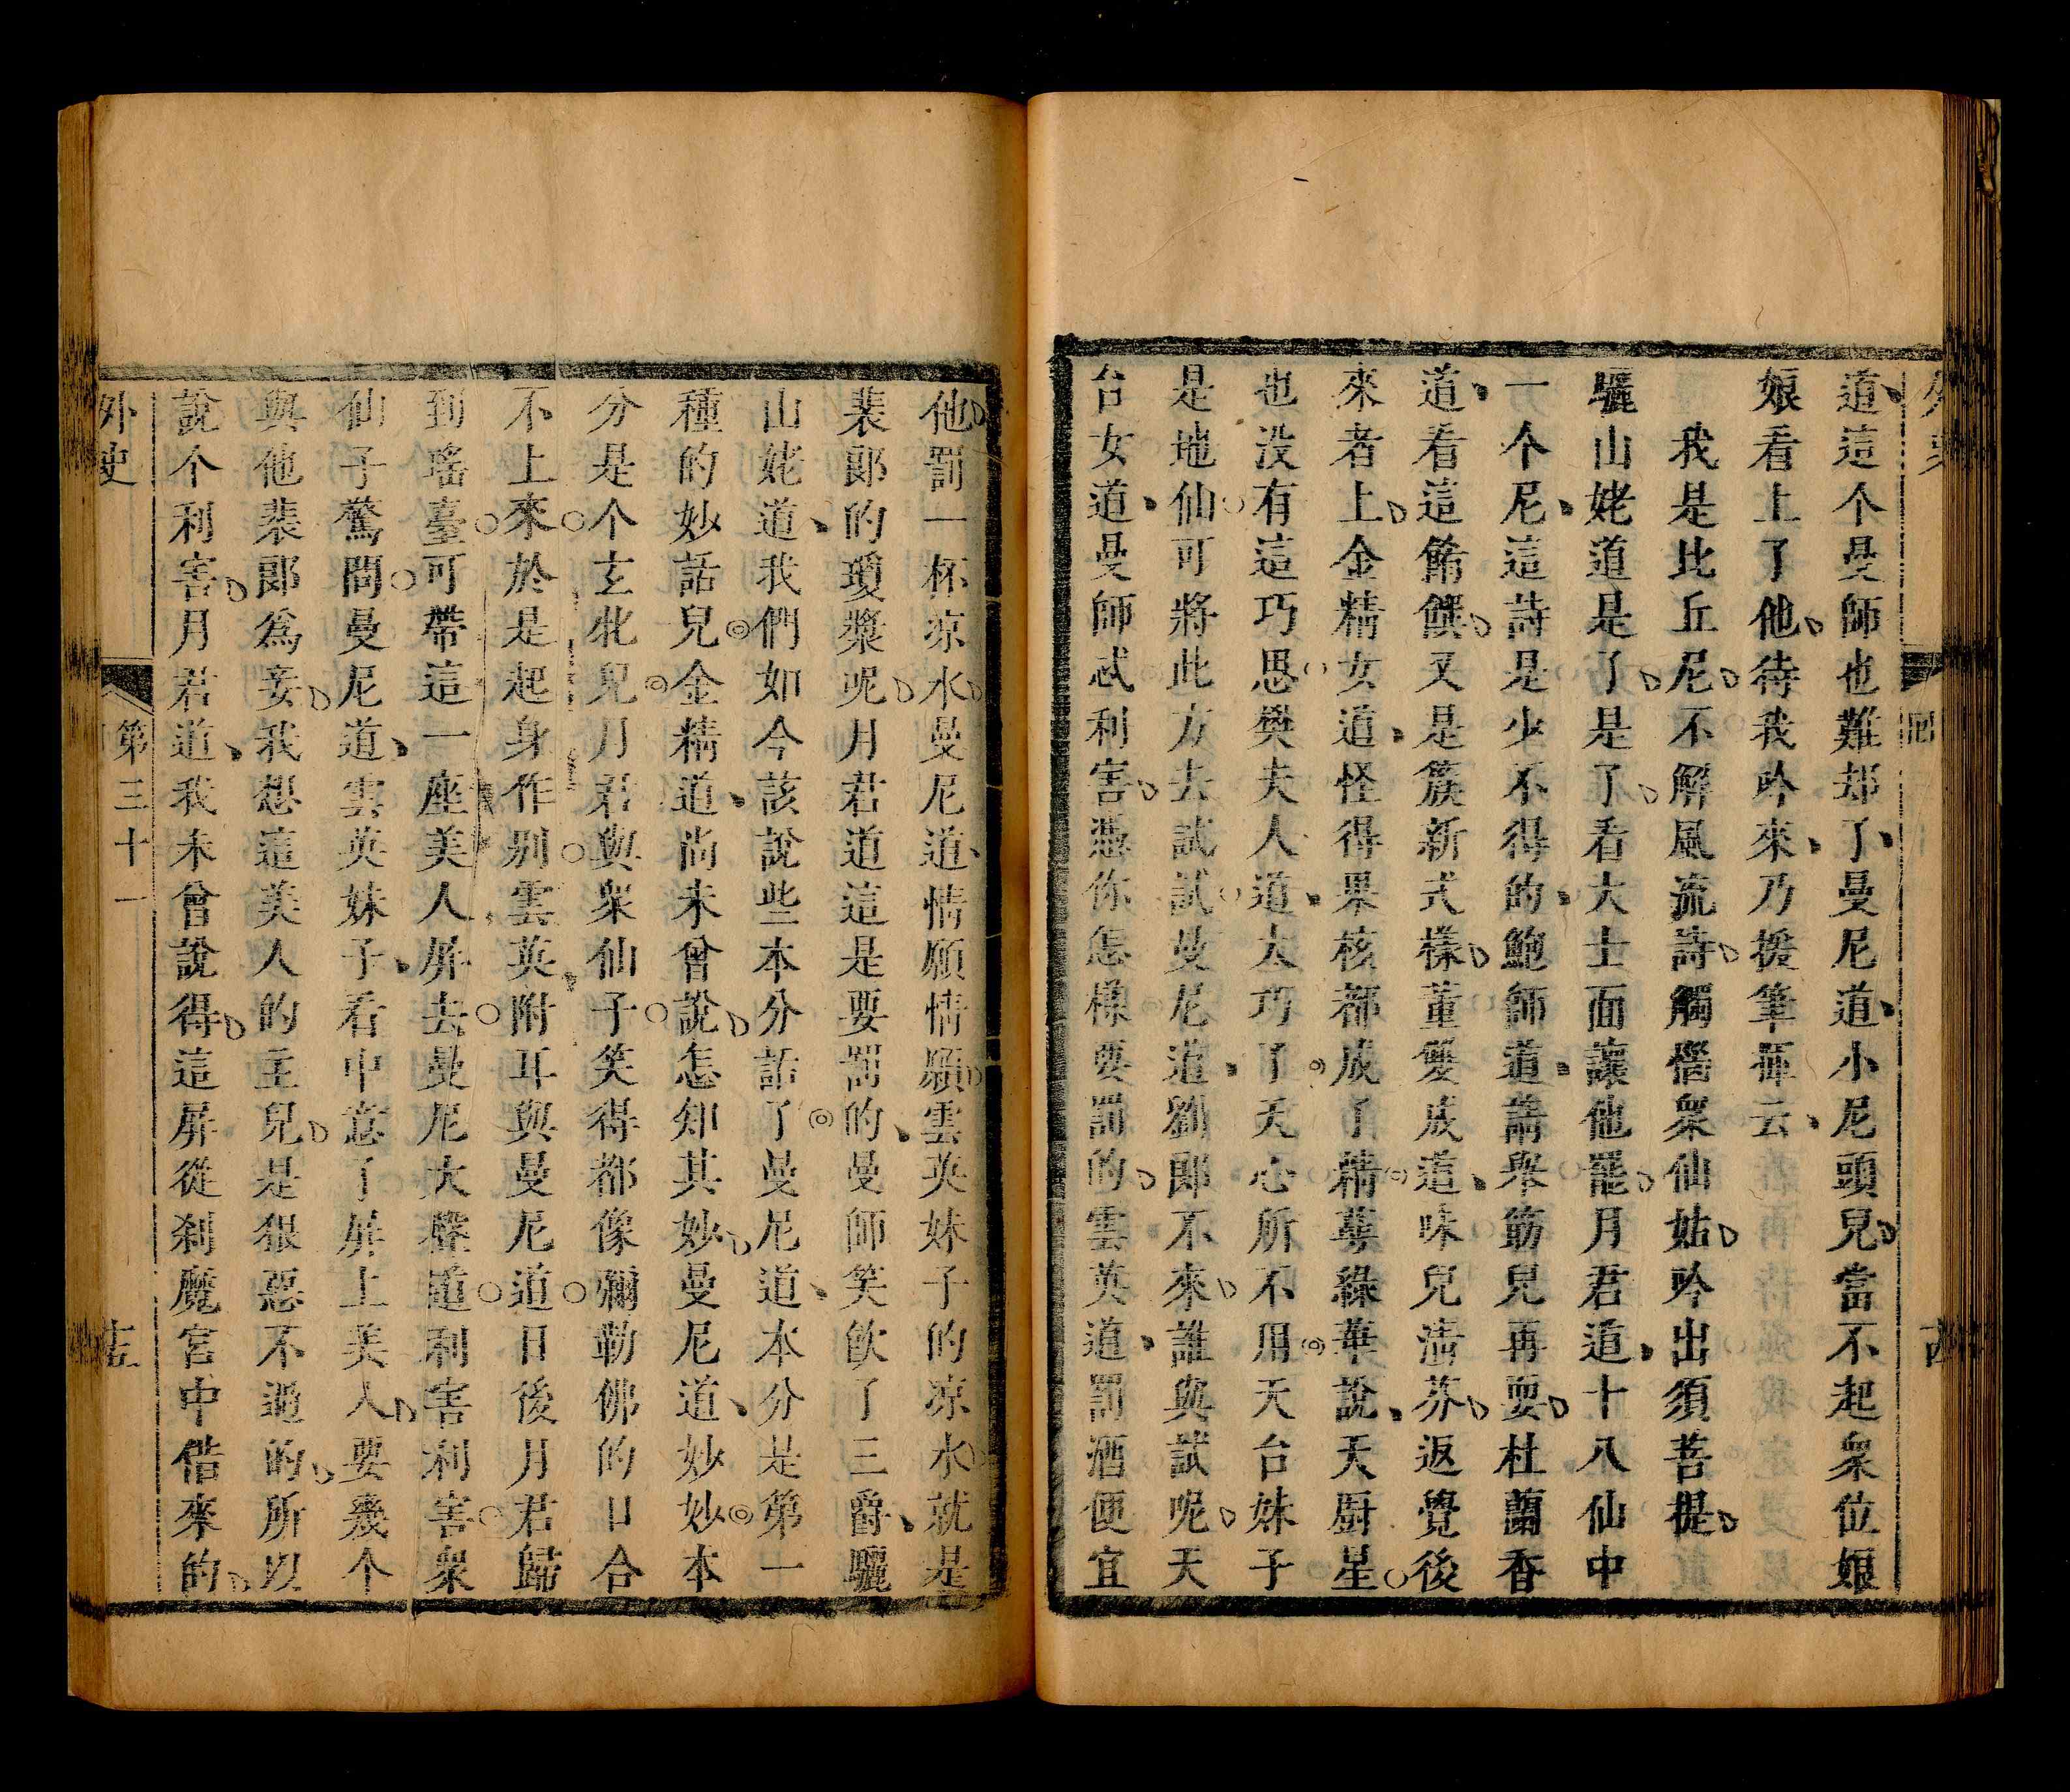 道這个曼師也難却了曼尼道小尼頭兒當不起衆位娘
娘看上了他待我吟來乃援筆揮云
我是比丘尼不解風流詩觸惱衆仙姑吟出須菩提
驪山姥道是了是了看大士面讓他罷月君道十八仙中
一个尼這詩是少不得的鮑師道請举筯兒再耍杜蘭香
道看這餚饌又是簇新式樣董雙成道味兒清芬返覺後
來者上金精女道怪得果核都成了精萼綠華說天厨星
也没有這巧思樊夫人道太巧了天心所不用天台妹子
是地仙可將此方去試試曼尼道劉郎不來誰與試呢天
台女道曼師忒利害憑你怎樣要罰的雲英道罰酒便宜
他罰一杯凉水曼尼道情願情願雲英妹子的凉水就是
裴郎的瓊漿呢月君道這是要罰的曼師笑飲了三爵驪
山姥道我們如今該說些本分話了曼尼道本分是第一
種的妙話兒金精道尚未曾說怎知其妙曼尼道妙妙本
分是个玄牝兒月君與衆仙子笑得都像彌勒佛的口合
不上來於是起身作别雲英附耳與曼尼道日後月君歸
到瑤臺可帶這一座美人屏去曼尼大聲道利害利害衆
仙子驚問曼尼道雲英妹子看中意了屏上美人要幾个
與他裴郎爲妾我想這美人的主兒是狠惡不過的所以
說个利害月君道我未曾說得這屏從刹魔宮中借來的
外史
第三十一